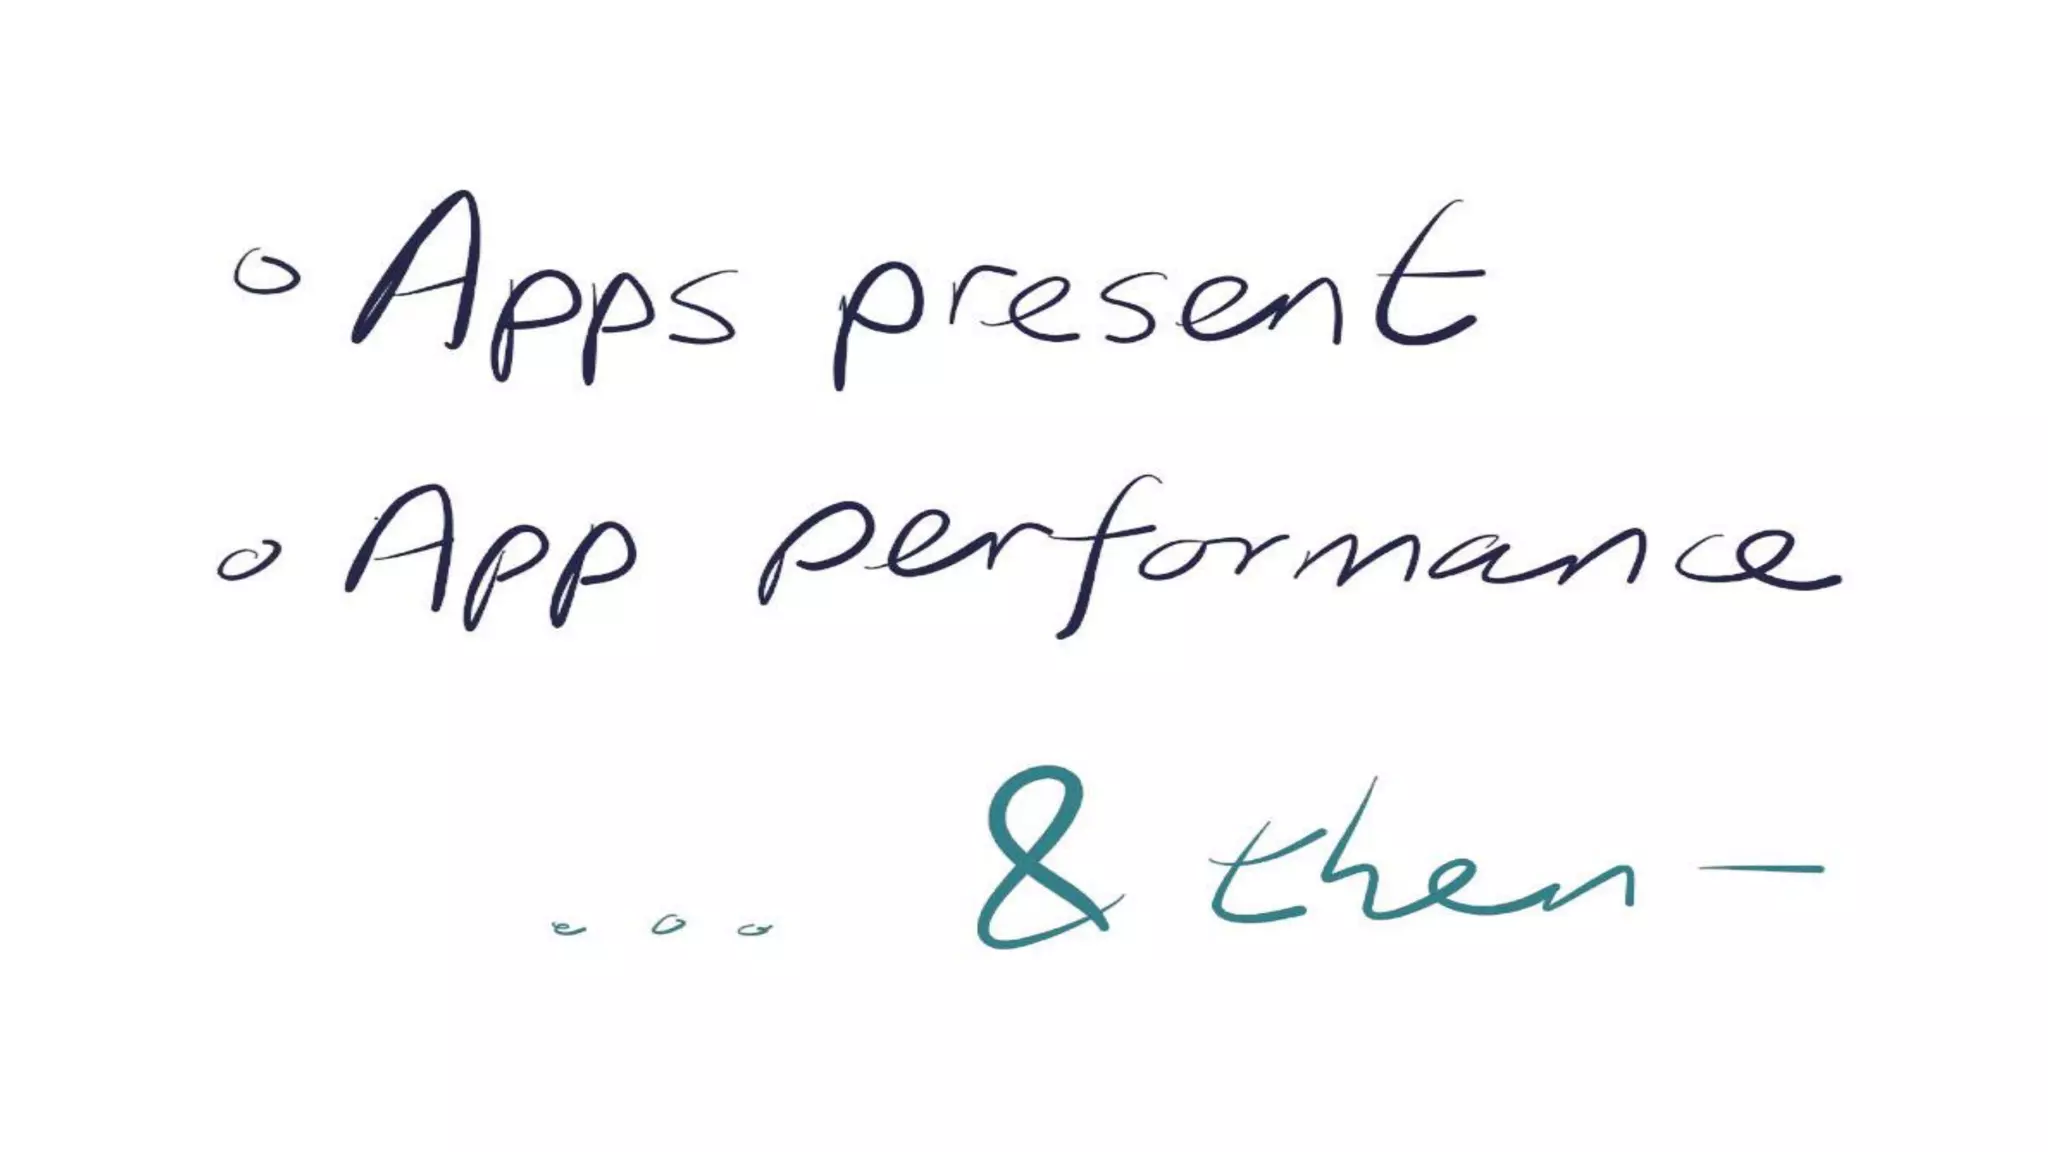 ◦ Apps present
◦ App performance
... & then —